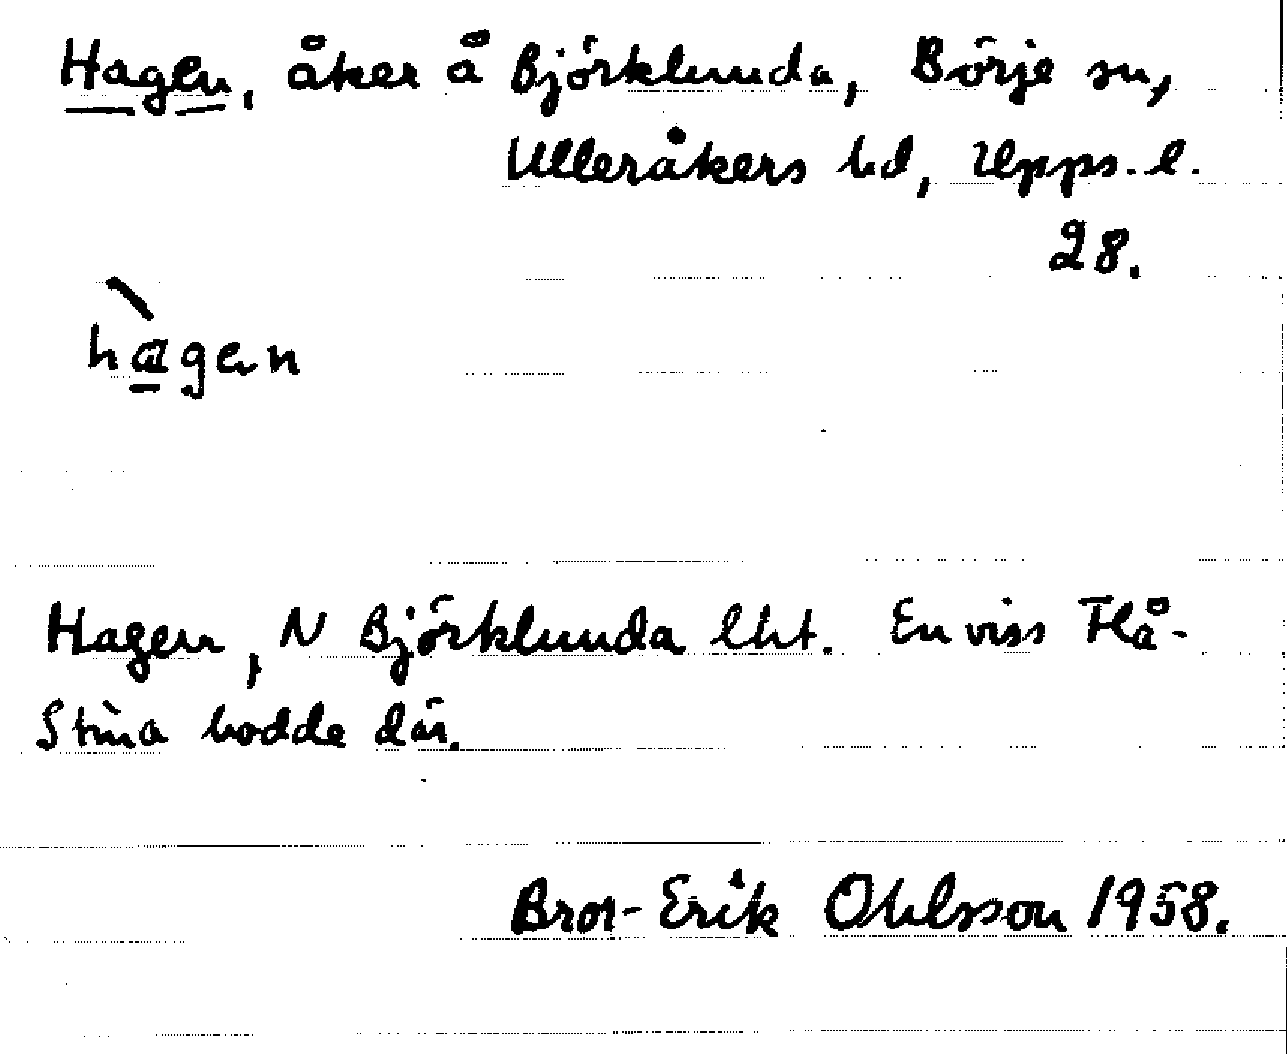 Hagen, åker å Björklunda, Börje sn,
Ulleråkers hd, Upps. l.
28.
hàgan
Hagen, N Björklunda lht. En viss Flå-
Stina bodde där.
Bror-Erik Ohlsson 1958.